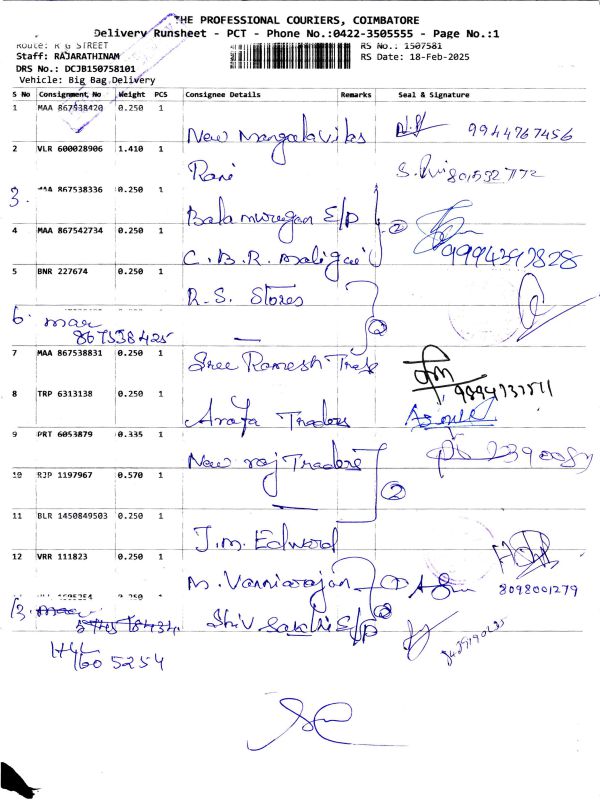 THE PROFESSIONAL COURIERS, COIMBATORE
Delivery Runsheet - PCT - Phone No.:0422-3505555 - Page No.:1
Route: R G STREET RS No.: 1507581
Staff: RAJARATHINAM RS Date: 18-Feb-2025
DRS No.: DCJB150758101
Vehicle: Big Bag Delivery
S No Consignment No Weight PCS Consignee Details Remarks Seal & Signature
1 MAA 867538420 0.250 1
New Mangala Vilas 9944767456
2 VLR 600028906 1.410 1
Rani S.
3. MAA 867538336 0.250 1
Balamurugan E/P
4 MAA 867542734 0.250 1
C.B.R. Maligai 2
5 BNR 227674 0.250 1
R.S. Stores
6. maa 867538425 2
7 MAA 867538831 0.250 1
Sree Ramesh
8 TRP 6313138 0.250 1
Arafa Traders
9 PRT 6053879 0.335 1
New raj Traders
10 RJP 1197967 0.570 1
2
11 BLR 1450849503 0.250 1
J.M. Edward
12 VRR 111823 0.250 1
M. Vanniarajan 8098001279
13. maa
Shiv Sakthi E/P 2
1605254